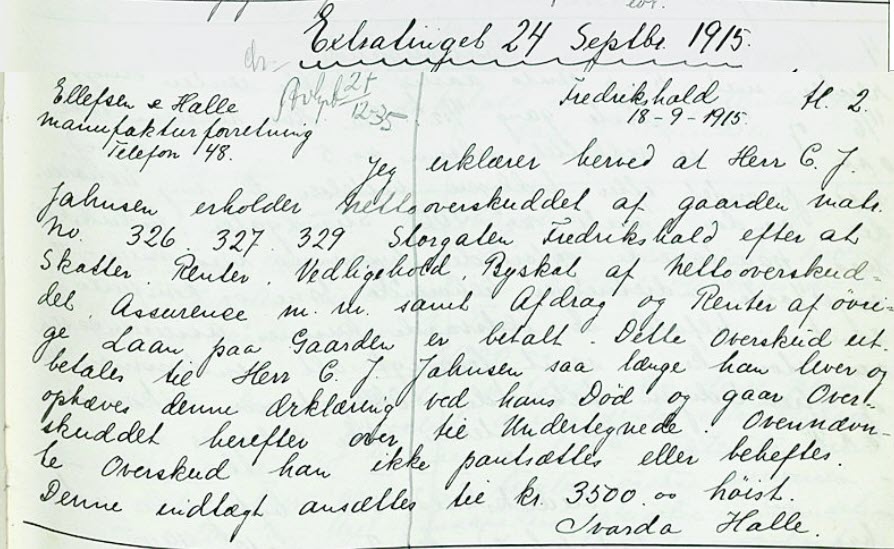 Extratinget 24 Septbr. 1915.
Ellefsen & Halle
Manufakturforretning
Telefon 48.
21
12-35
Fredrikshald
18-9-1915.
H. 2.
Jeg erklærer herved at Herr C. J.
Jahnsen erholder nettooverskuddet af gaarden matr.
No. 326. 327. 329 Storgaten Fredrikshald efter at
Skatter, Renter, Vedligehold, Byskat af nettooverskud-
det, Assurence m. m. samt Afdrag og Renter af övri-
ge Laan paa Gaarden er betalt. Dette Overskud ut-
betales til Herr C. J. Jahnsen saa længe han lever og
ophæves denne Erklæring ved hans Död og gaar Over-
skuddet herefter over til Undertegnede. Ovennævn-
te Overskud kan ikke pantsættes eller beheftes.
Denne indtægt ansættes til kr. 3500.00 höist.
Halle.